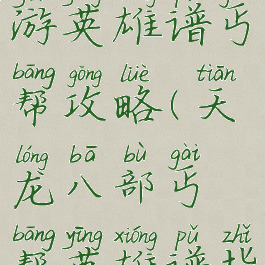 游英雄谱丐
bāng gōng lüè tiān
帮攻略(天
lóng bā bù gài
龙八部丐
bāng yīng xióng pǔ zhǐ
帮英雄谱指